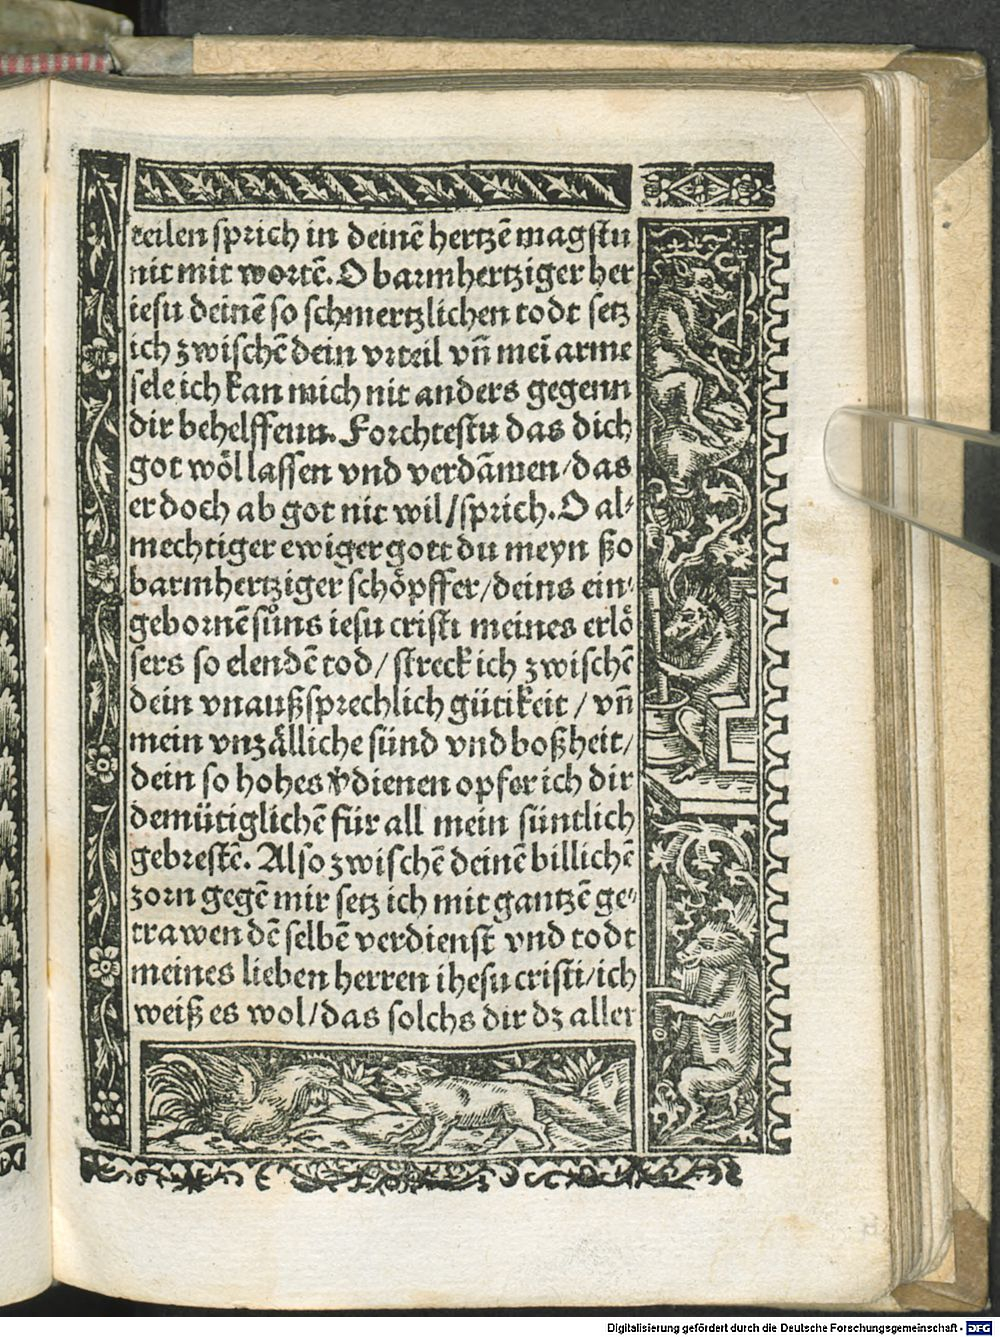 teilen sprich in deinē hertzē magstu
nit mit wortē. O barmhertziger her
iesu deinē so schmertzlichen todt setz
ich zwischē dein vrteil vn̄ mei᷑ arme
sele ich kan mich nit anders gegenn
dir behelffenn. Forchtestu das dich
got wöl lassen vnd verdāmen/das
er doch ab got nit wil/sprich. O al⸗
mechtiger ewiger gott du meyn ßo
barmhertziger schöpffer/deins ein⸗
gebornē sůns iesu cristi meines erlö
sers so elendē tod/streck ich zwischē
dein vnaußsprechlich gütikeit / vn̄
mein vnzälliche sünd vnd boßheit/
dein so hohes v̄dienen opfer ich dir
demütiglichē für all mein süntlich
gebrestē. Also zwischē deinē billichē
zorn gegē mir setz ich mit gantzē ge⸗
trawen dē selbē verdienst vnd todt
meines lieben herren ihesu cristi/ich
weiß es wol/das solchs dir dz aller
Digitalisierung gefördert durch die Deutsche Forschungsgemeinschaft - DFG